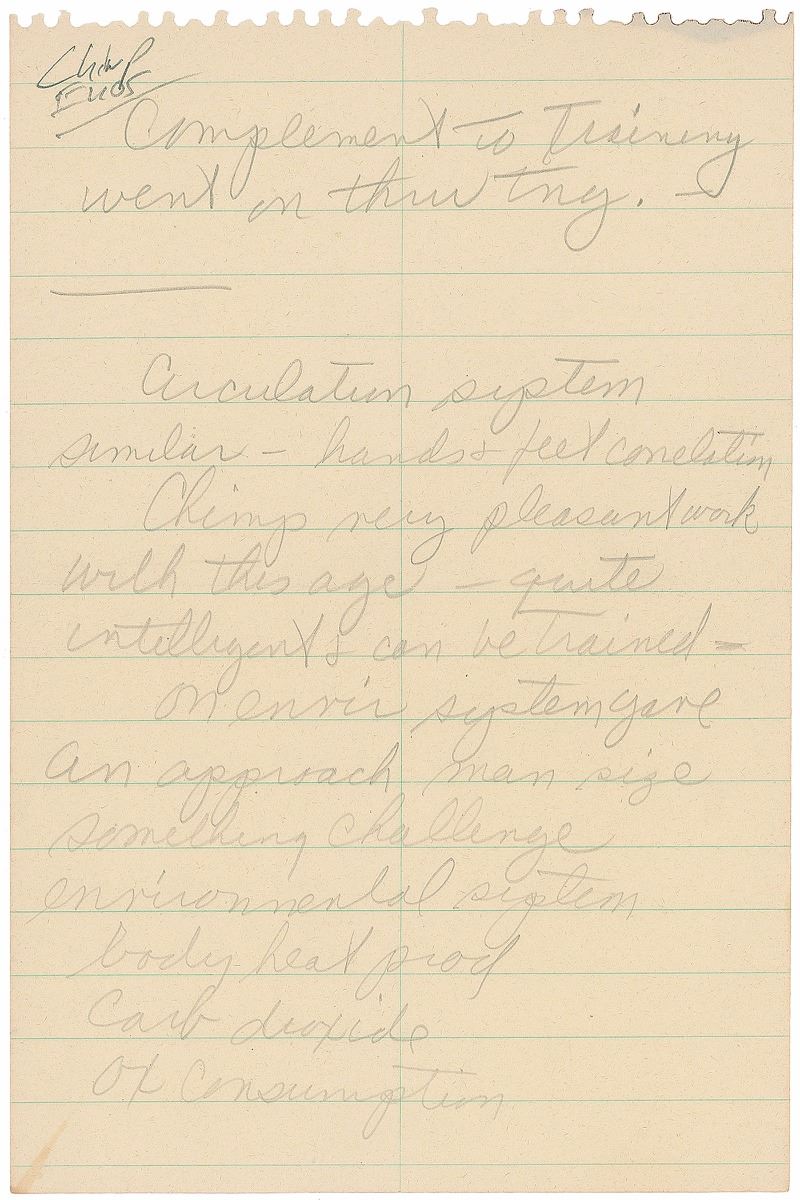 Chimp
Enos
Complement to Training
went on thru tng. —
Circulation system
similar - hands & feet correlation
Chimp very pleasant work
with this age - quite
intelligent & can be trained -
on envir system gave
an approach man size
something challenge
environmental system
body heat prod
Carb dioxide
Ox consumption